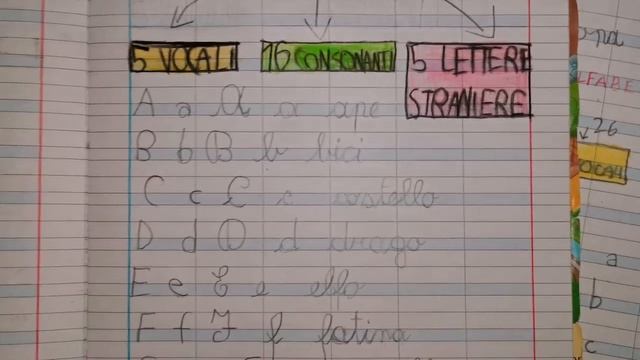 5 VOCALI 16 CONSONANTI 5 LETTERE STRANIERE
A a A a ape
B b B b bici
C c C c costello
D d D d drago
E e E e elfo
F f F f fatina
26
a
b
c